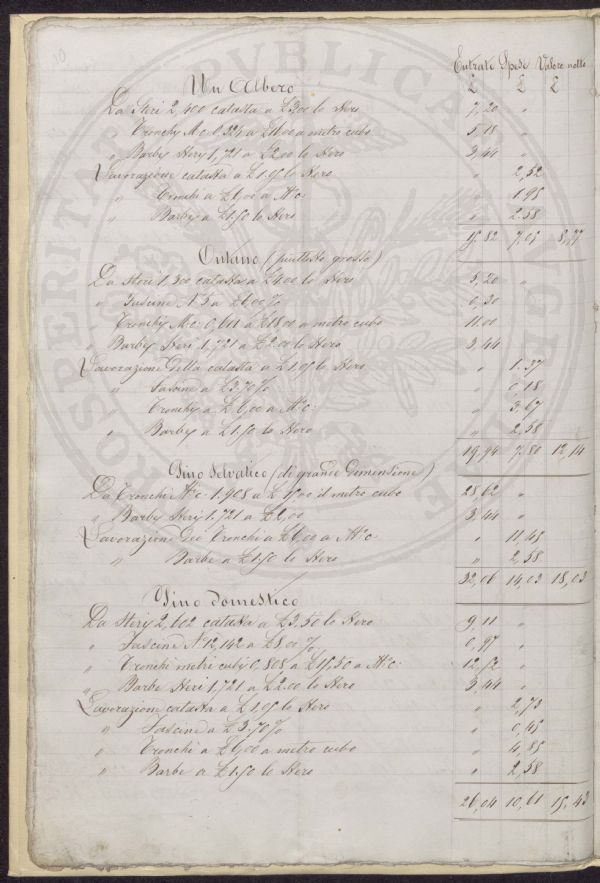 10
Entrate Spese Valore netto
£ £ £
Un Albero
Da Steri 2,400 catasta a £3.00 lo Stero 7,20 "
" Tronchi M.c. 0,324 a £16.00 a metro cubo 5,18 "
" Barbe Steri 1,721 a £2.00 lo Stero 3,44 "
Lavorazione catasta a £1.05 lo Stero " 2,52
" Tronchi a £6,00 a M.c. " 1.95
" Barbe a £1.50 lo Stero " 2.58
15.82 7,05 8,77
Ontano (piuttosto grosso)
Da Steri 1,300 catasta a £4.00 lo Stero 5,20 "
" Fascine N. 5 a £6.00 % 0,30 "
" Tronchi M.c. 0,611 a £18.00 a metro cubo 11.00
" Barbe Steri 1,721 a £2.00 lo Stero 3,44
Lavorazione della catasta a £1.05 lo Stero " 1.37
" Fascine a £3.70 % " 0,18
" Tronchi a £6,00 a M.c. " 3,67
" Barbe a £1.50 lo Stero " 2,58
19,94 7,80 12,14
Pino Selvatico (di grande dimensione)
Da Tronchi M.c. 1.908 a £15.00 il metro cubo 28,62 "
" Barbe Steri 1.721 a £2,00 3,44 "
Lavorazione dei Tronchi a £6,00 a M.c. " 11,45
" Barbe a £1.50 lo Stero " 2,58
32,06 14,03 18,03
Pino domestico
Da Steri 2,602 catasta a £3.50 lo Stero 9,11 "
" Fascine N. 12,142 a £8.00 % 0,97 "
" Tronchi metri cubi 0,808 a £15.50 a M.c. 12,52 "
" Barbe Steri 1.721 a £2.00 lo Stero 3,44 "
Lavorazione catasta a £1.05 lo Stero " 2,73
" Fascine a £3.70 % " 0,45
" Tronchi a £6,00 a metro cubo " 4,85
" Barbe a £1.50 lo Stero " 2,58
26,04 10,61 15,43